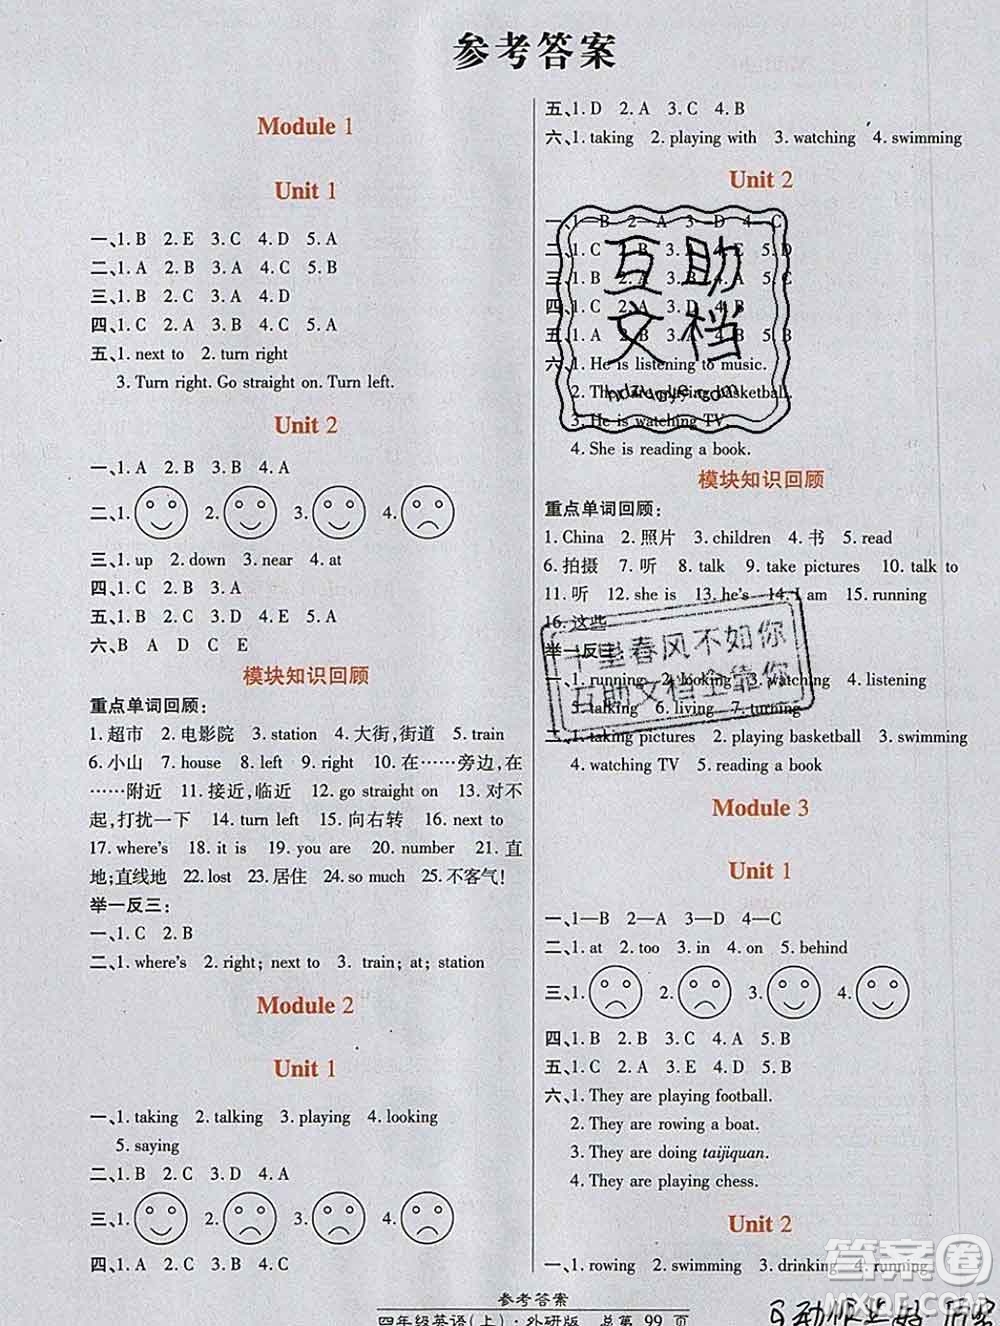 参考答案
Module 1
Unit 1
一、1. B 2. E 3. C 4. D 5. A
二、1. B 2. B 3. A 4. C 5. B
三、1. B 2. C 3. A 4. D
四、1. C 2. A 3. B 4. D 5. A
五、1. next to 2. turn right
3. Turn right. Go straight on. Turn left.
Unit 2
一、1. A 2. B 3. B 4. A
二、1. 2. 3. 4.
三、1. up 2. down 3. near 4. at
四、1. C 2. B 3. A
五、1. C 2. B 3. A 4. A 5. B
六、B A D C E
模块知识回顾
重点单词回顾:
1. 超市 2. 电影院 3. station 4. 大街,街道 5. train
6. 小山 7. house 8. left 9. right 10. 在……旁边,在
……附近 11. 接近,临近 12. go straight on 13. 对不
起,打扰一下 14. turn left 15. 向右转 16. next to
17. where's 18. it is 19. you are 20. number 21. 直
地;直线地 22. lost 23. 居住 24. so much 25. 不客气!
举一反三:
一、1. C 2. B
二、1. where's 2. right; next to 3. train; at; station
Module 2
Unit 1
一、1. taking 2. talking 3. playing 4. looking
5. saying
二、1. B 2. C 3. D 4. A
三、1. 2. 3. 4.
四、1. A 2. C 3. B 4. A 5. B
五、1. D 2. A 3. C 4. B
六、1. taking 2. playing with 3. watching 4. swimming
Unit 2
一、1—B 2—A 3—D 4—C
二、1. C 2. B 4. E 5. D
三、1. B 2. A 3. C
四、1. C 2. A 3. D
五、1. A 2. B 3. B 4. A 5. B
六、1. He is listening to music.
2. They are playing basketball.
3. He is watching TV.
4. She is reading a book.
模块知识回顾
重点单词回顾:
1. China 2. 照片 3. children 4. 书 5. read
6. 拍摄 7. 听 8. talk 9. take pictures 10. talk to
11. 听 12. she is 13. he's 14. I am 15. running
16. 这些
举一反三:
一、1. running 2. looking 3. watching 4. listening
5. talking 6. living 7. turning
二、1. taking pictures 2. playing basketball 3. swimming
4. watching TV 5. reading a book
Module 3
Unit 1
一、1—B 2—A 3—D 4—C
二、1. at 2. too 3. in 4. on 5. behind
三、1. 2. 3. 4.
四、1. B 2. B 3. C 4. A 5. B
五、1. C 2. A 3. C 4. B 5. B
六、1. They are playing football.
2. They are rowing a boat.
3. They are doing taijiquan.
4. They are playing chess.
Unit 2
一、1. rowing 2. swimming 3. drinking 4. running
参考答案
四年级英语(上)·外研版 总第 99 页
互助文档
千里春风不如你
互助文档全靠你
答案圈